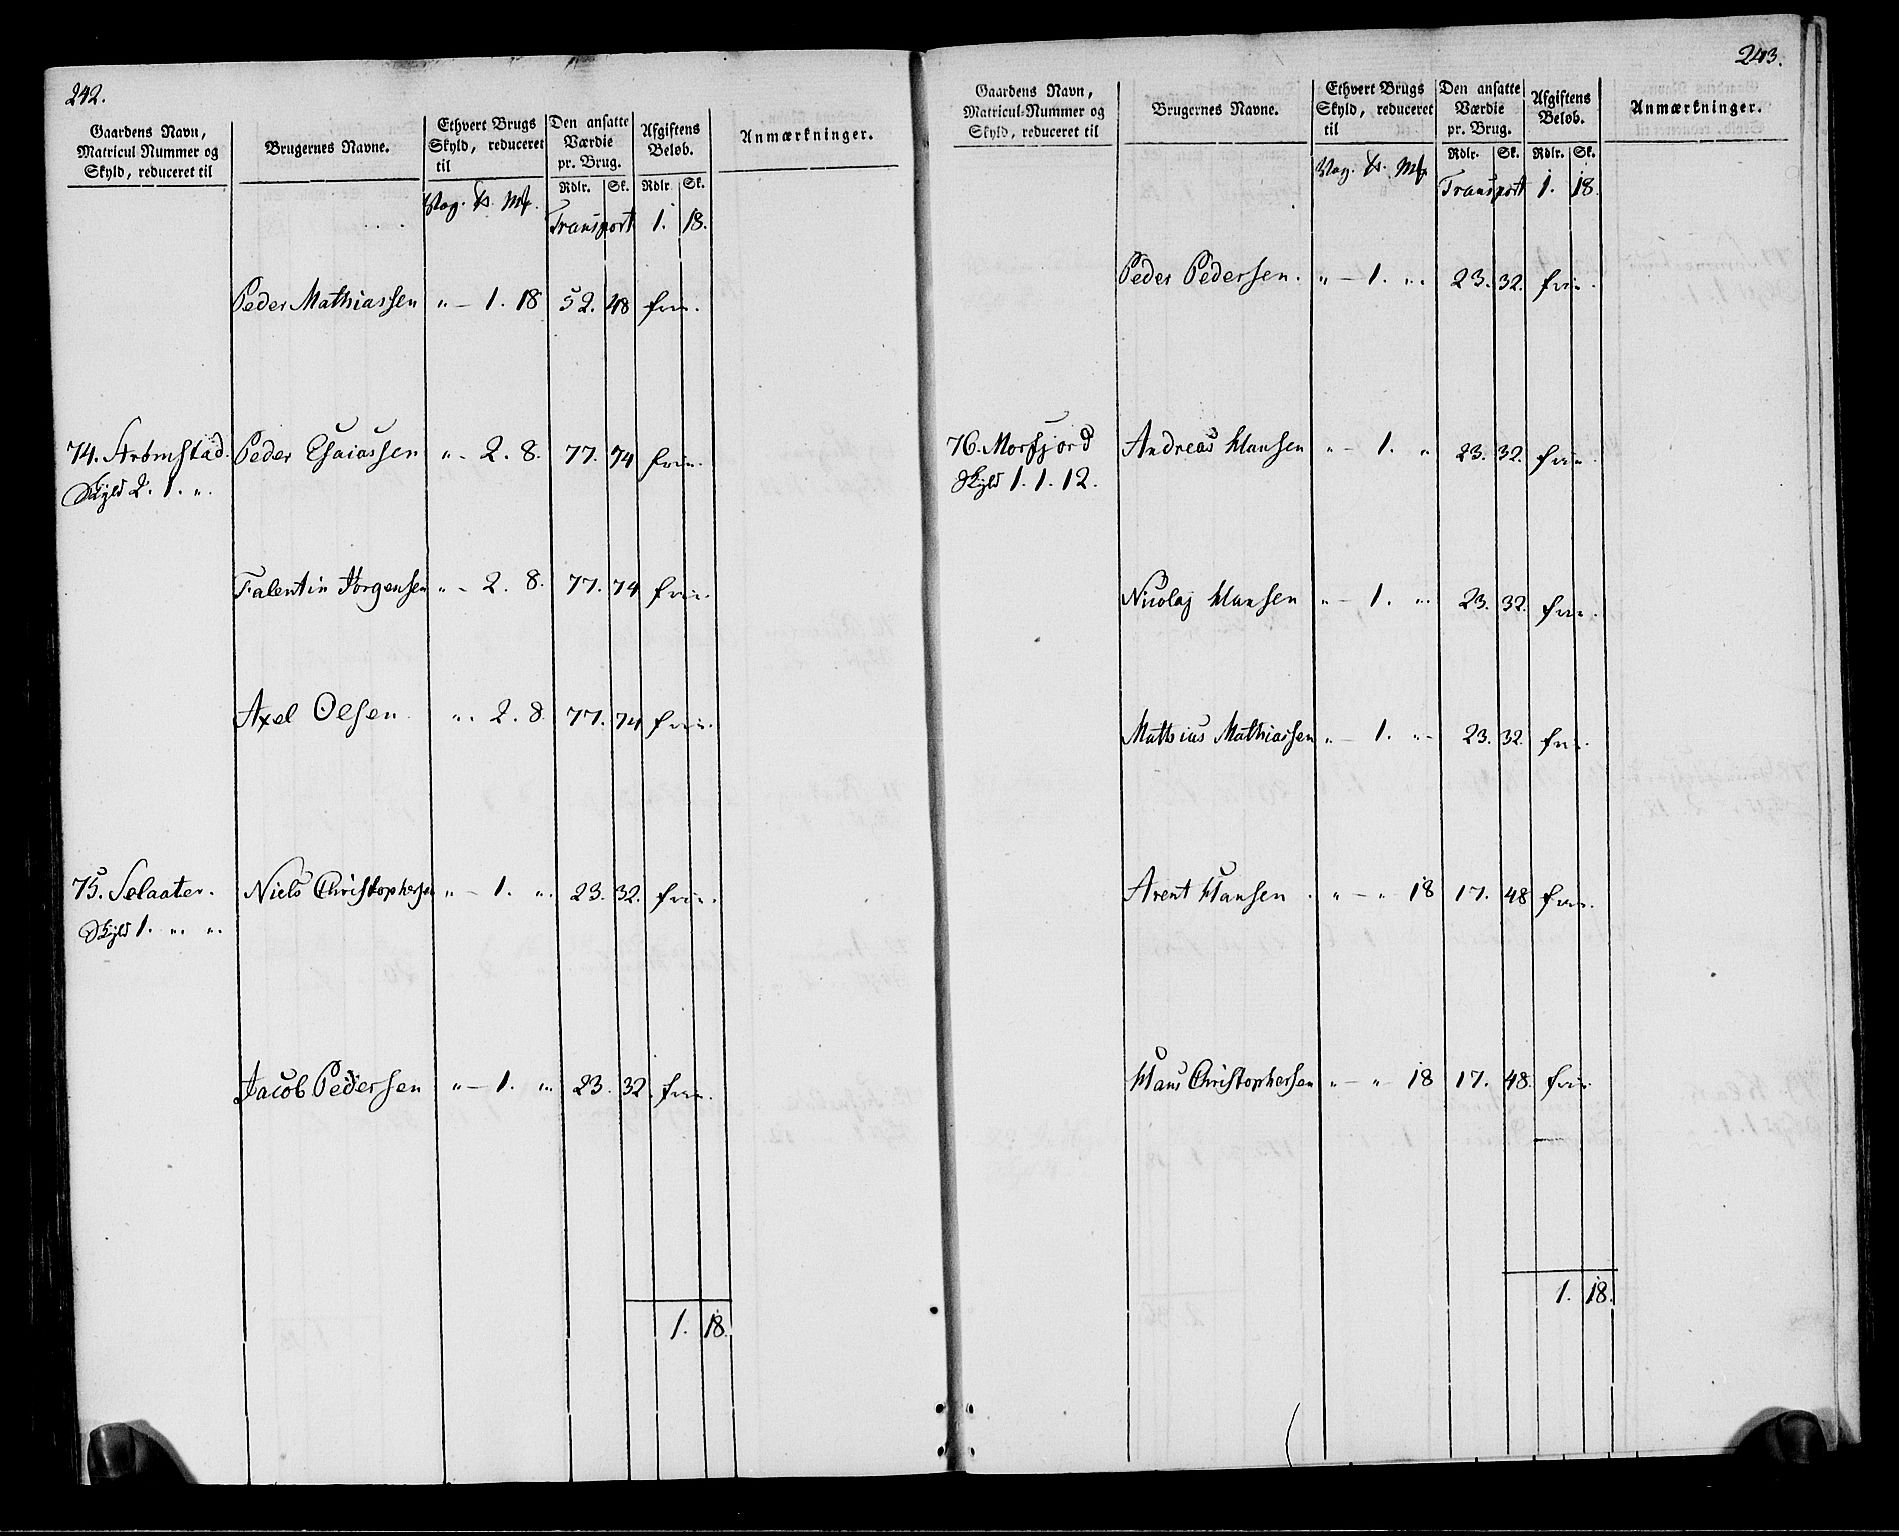 242.
Gaardens Navn, Matricul Nummer og Skyld, reduceret til | Brugernes Navne. | Ethvert Brugs Skyld, reduceret til | Den ansatte Værdie pr. Brug. | Afgiftens Beløb. | Anmærkninger.
Vog. ℔. Mk. | Rdlr. | Sk. | Rdlr. | Sk.
Transport 1. 18.
Peder Mathiassen " – 1. 18 52. 48 frie.
74. Arbmstad. Peder Esaiassen " – 2. 8. 77. 74 frie.
Skyld 2. 1. ".
Falentin Jørgensen " – 2. 8. 77. 74 frie.
Axel Olsen. " . 2. 8 77. 74 frie.
75. Selaater. Niels Christophersen " – 1. " . 23. 32. frie.
Skyld 1. " . " .
Jacob Pedersen " – 1. " . 23. 32. frie.
1. 18.
243.
Gaardens Navn, Matricul-Nummer og Skyld, reduceret til | Brugernes Navne. | Ethvert Brugs Skyld, reduceret til | Den ansatte Værdie pr. Brug. | Afgiftens Beløb. | Anmærkninger.
Vog. ℔. Mk. | Rdlr. | Sk. | Rdlr. | Sk.
Transport 1. 18.
Peder Pedersen. " – 1. " . 23. 32. frie.
76. Morfjord Andreas Hansen " – 1. " 23. 32. frie.
Skyld 1. 1. 12.
Nicolaj Hansen " – 1. " . 23. 32. frie.
Mathias Mathiassen " – 1. " – 23. 32. frie.
Arent Hansen. " – " 18 17. 48 frie.
Hans Christophersen " – " 18 17. 48. frie.
1. 18.